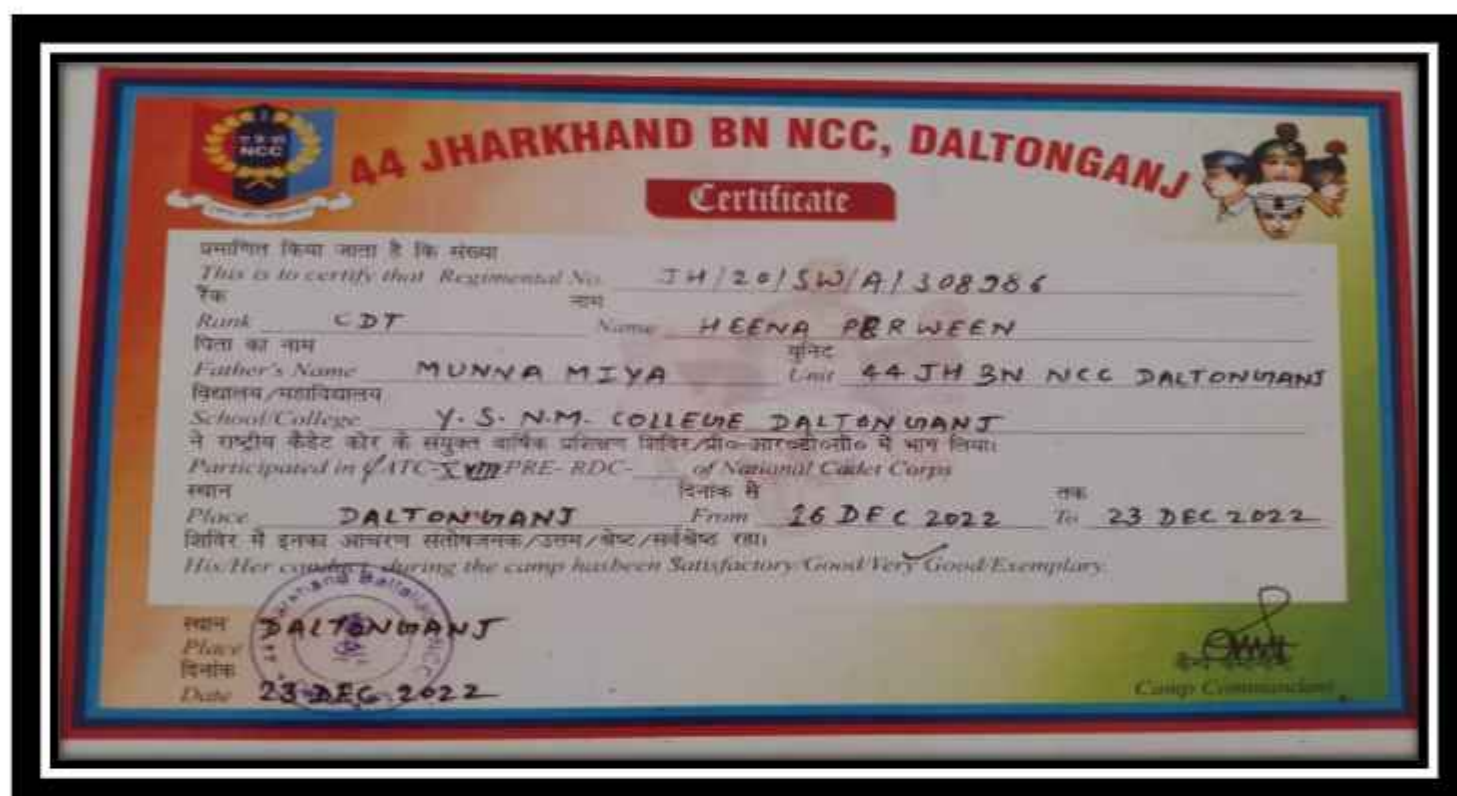 NCC
44 JHARKHAND BN NCC, DALTONGANJ
Certificate
प्रमाणित किया जाता है कि संख्या
This is to certify that Regimental No. JH/20/SW/A/308986
रैंक नाम
Rank CDT Name HEENA PERWEEN
पिता का नाम युनिट
Father's Name MUNNA MIYA Unit 44 JH BN NCC DALTONGANJ
विद्यालय/महाविद्यालय
School/College Y.S.N.M. COLLEGE DALTONGANJ
ने राष्ट्रीय कैडेट कोर के संयुक्त वार्षिक प्रशिक्षण शिविर/प्री०-आर०डी०सी० में भाग लिया।
Participated in CATC-XVIII PRE- RDC- of National Cadet Corps
स्थान दिनांक से तक
Place DALTONGANJ From 16 DEC 2022 To 23 DEC 2022
शिविर में इनका आचरण संतोषजनक/उत्तम/श्रेष्ट/सर्वश्रेष्ठ रहा।
His/Her conduct during the camp hasbeen Satisfactory/Good/Very Good/Exemplary.
स्थान
Place DALTONGANJ
दिनांक
Date 23 DEC 2022
Camp Commandant